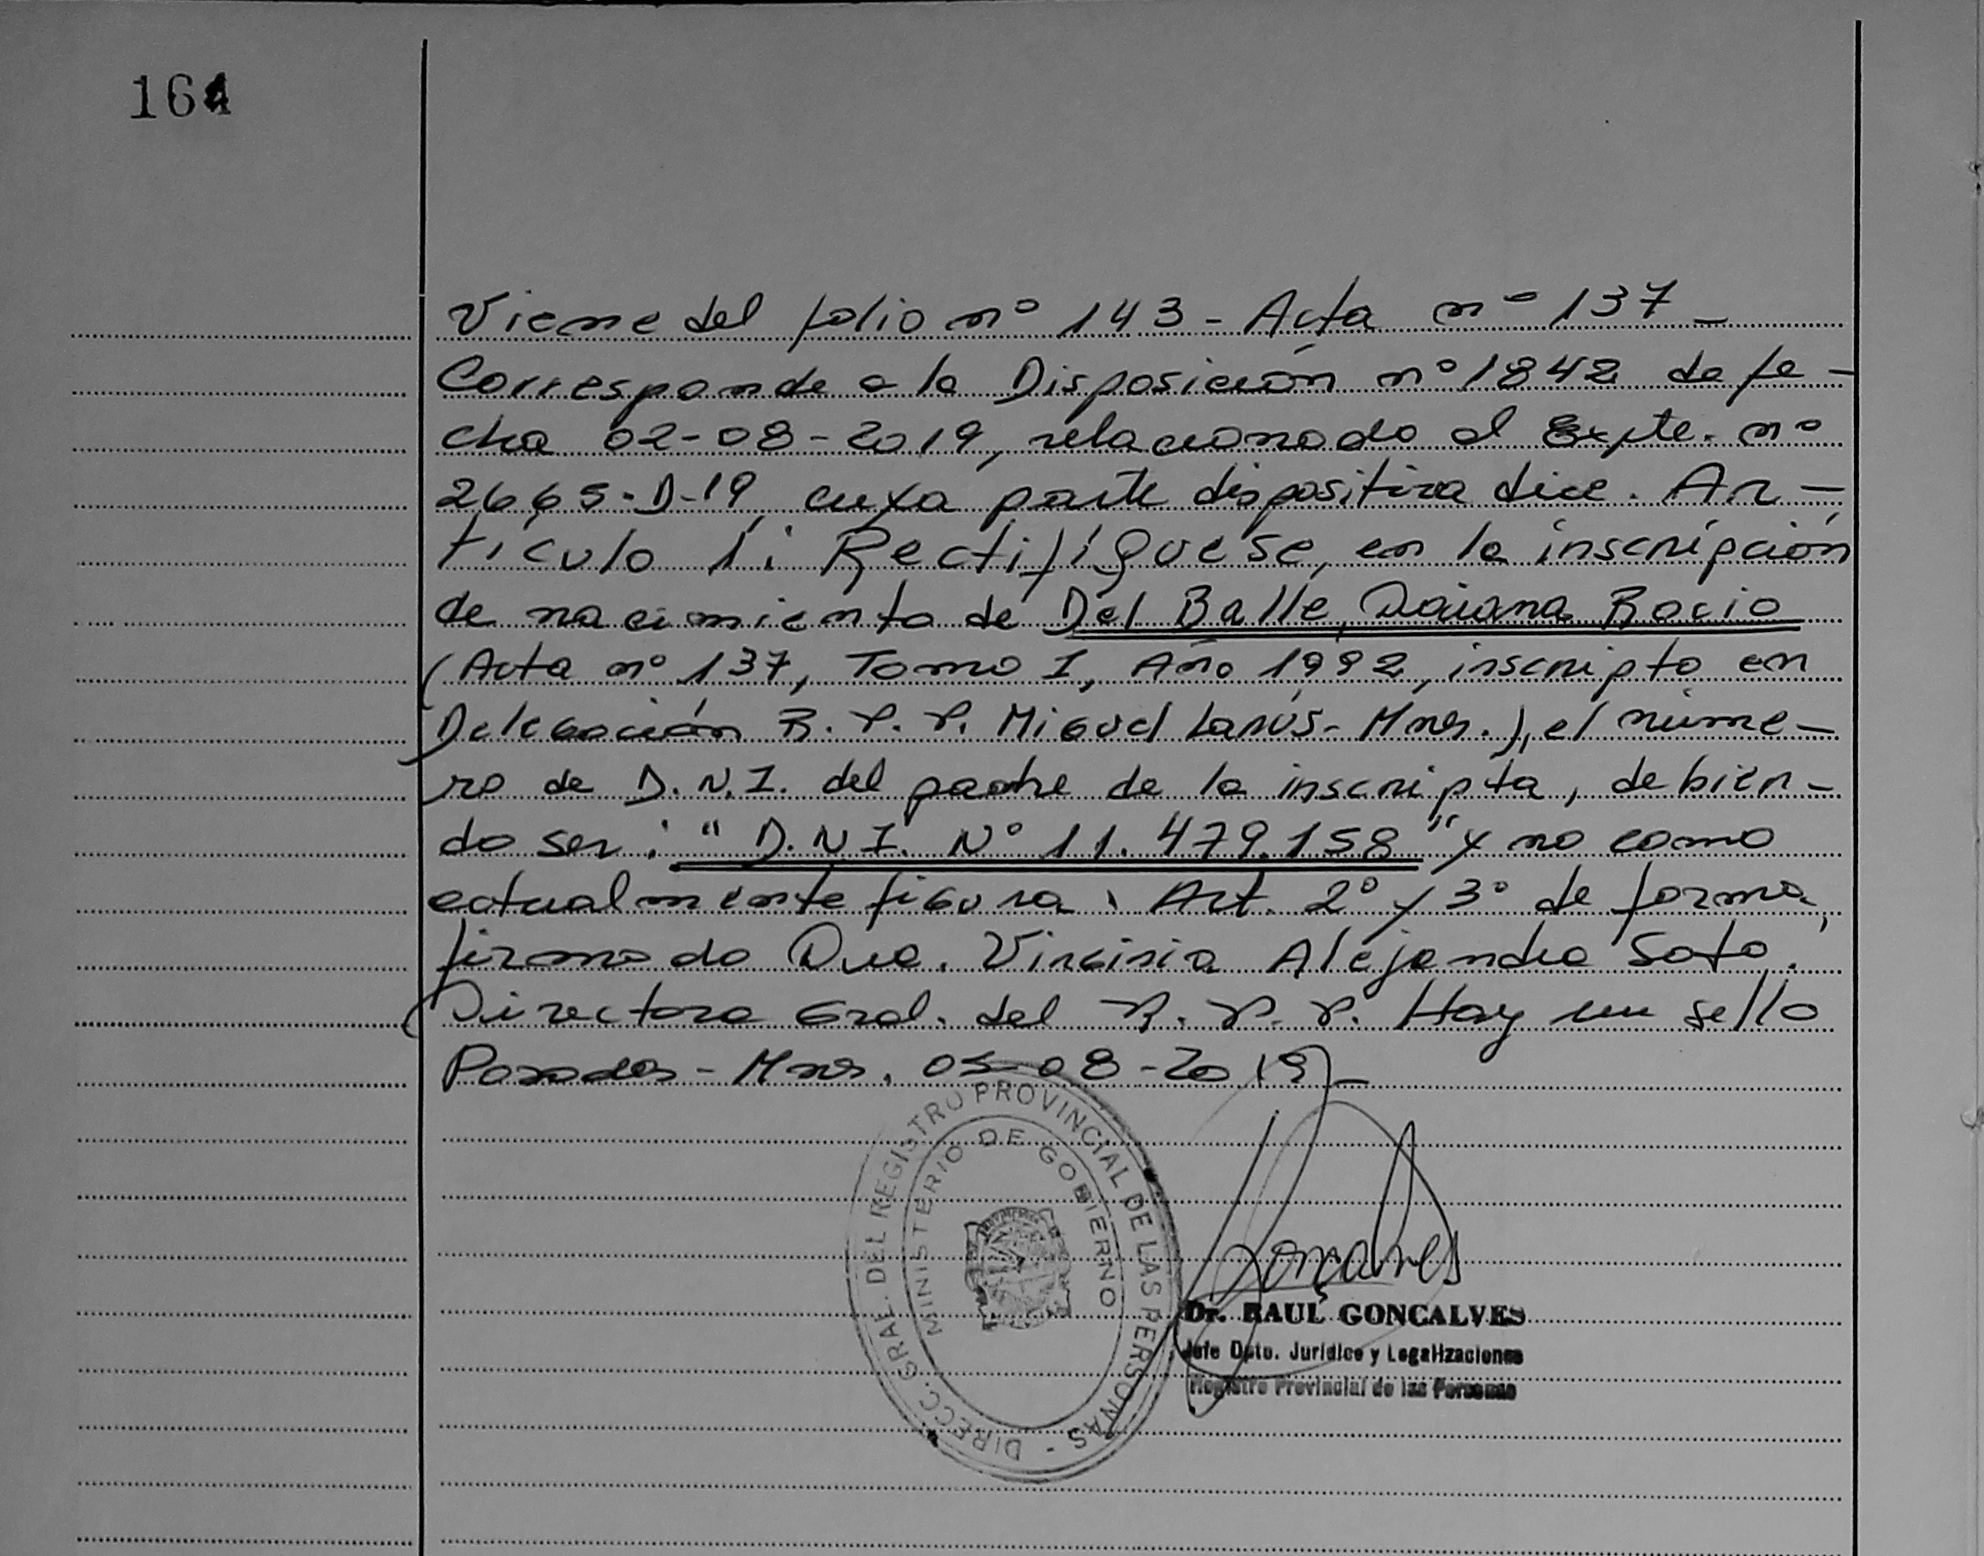 164
Viene del folio nº 143 - Acta nº 137 -
Corresponde a la Disposición nº 1842 de fe -
cha 02-08-2019, relacionado al Expte. nº
2665-D-19, cuya parte dispositiva dice. Ar -
tículo 1: Rectifíquese, en la inscripción
de nacimiento de Del Balle, Daiana Rocio
(Acta nº 137, Tomo I, Año 1992, inscripto en
Delegación R.P.P. Miguel Lanús - Mnes.), el núme -
ro de D.N.I. del padre de la inscripta, debien -
do ser: " D.N.I. Nº 11.479.158 " y no como
actualmente figura. Art. 2º y 3º de forma,
firmado Dra. Virginia Alejandra Soto.
Directora Gral. del R.P.P. Hay un sello
Posadas - Mnes. 05-08-2019 -
DIRECC. GRAL. DEL REGISTRO PROVINCIAL DE LAS PERSONAS -
MINISTERIO DE GOBIERNO
Goncalves
Dr. RAUL GONCALVES
Jefe Dpto. Jurídico y Legalizaciones
Registro Provincial de las Personas